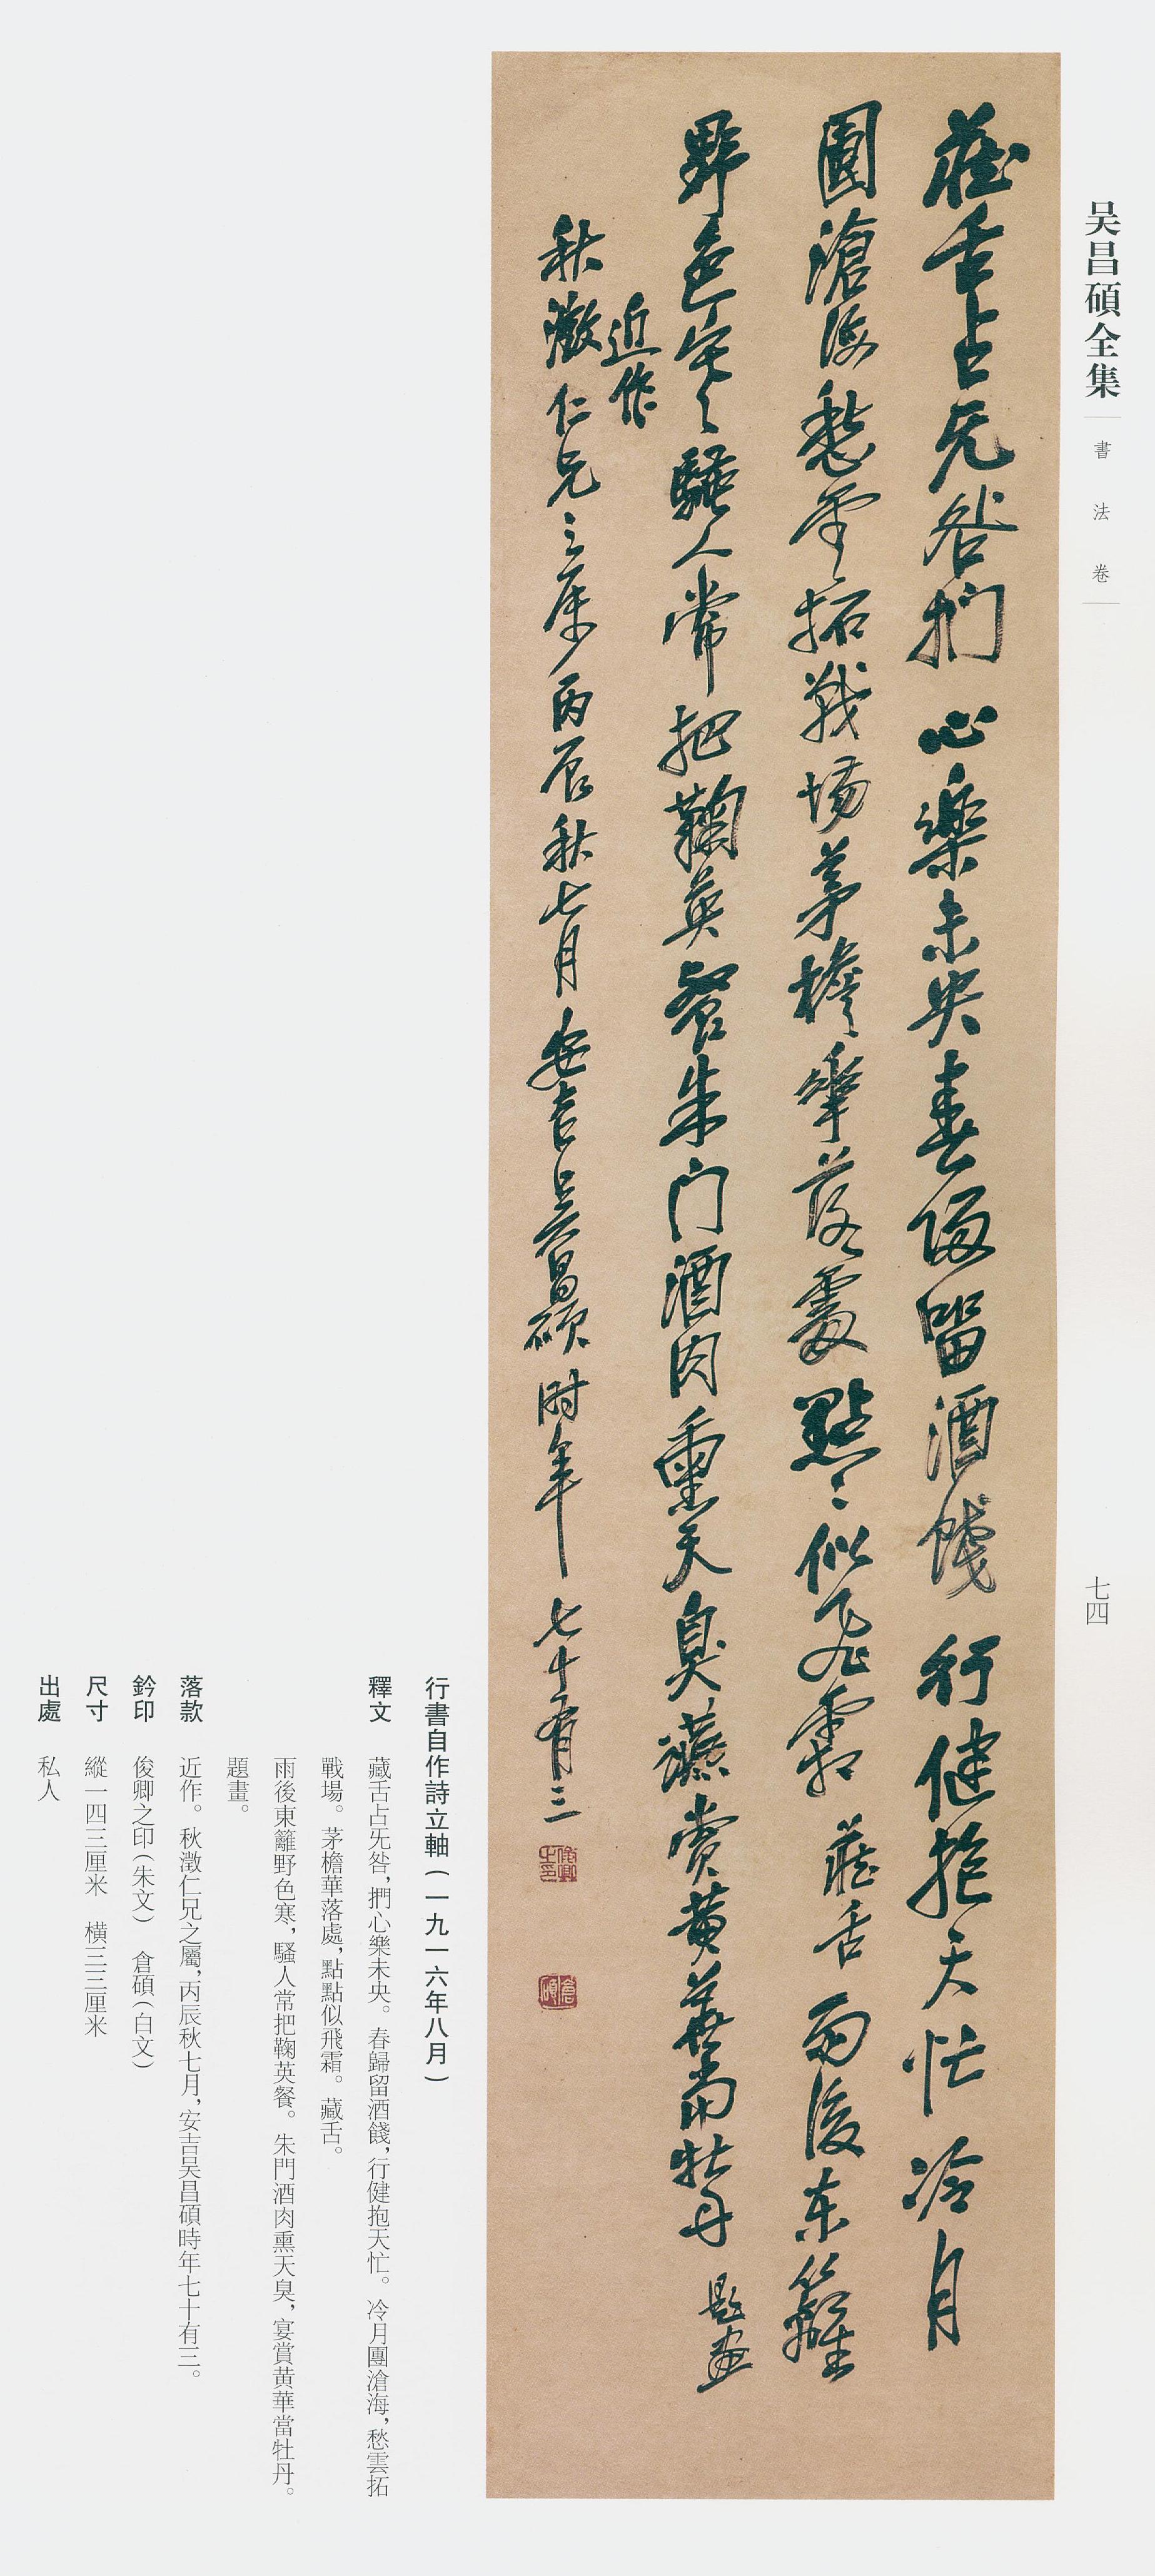 吴昌碩全集
書法卷
七四
藏舌占旡咎捫心樂未央春歸留酒餞行健抱天忙冷月
團滄海愁雲拓戰場茅檐華落處點〻似飛霜藏舌雨後東籬
野色寒〻騷人常把鞠英餐朱门酒肉熏天臭讌賞黄華當牡丹題畫
近作
秋澂仁兄之屬丙辰秋七月安吉吴昌碩时年七十有三
俊卿之印
倉碩
行書自作詩立軸(一九一六年八月)
釋文 藏舌占旡咎,捫心樂未央。春歸留酒餞,行健抱天忙。冷月團滄海,愁雲拓
戰場。茅檐華落處,點點似飛霜。藏舌。
雨後東籬野色寒,騷人常把鞠英餐。朱門酒肉熏天臭,宴賞黄華當牡丹。
題畫。
落款 近作。秋澂仁兄之屬,丙辰秋七月,安吉吴昌碩時年七十有三。
鈐印 俊卿之印(朱文) 倉碩(白文)
尺寸 縱一四三厘米 横三三厘米
出處 私人